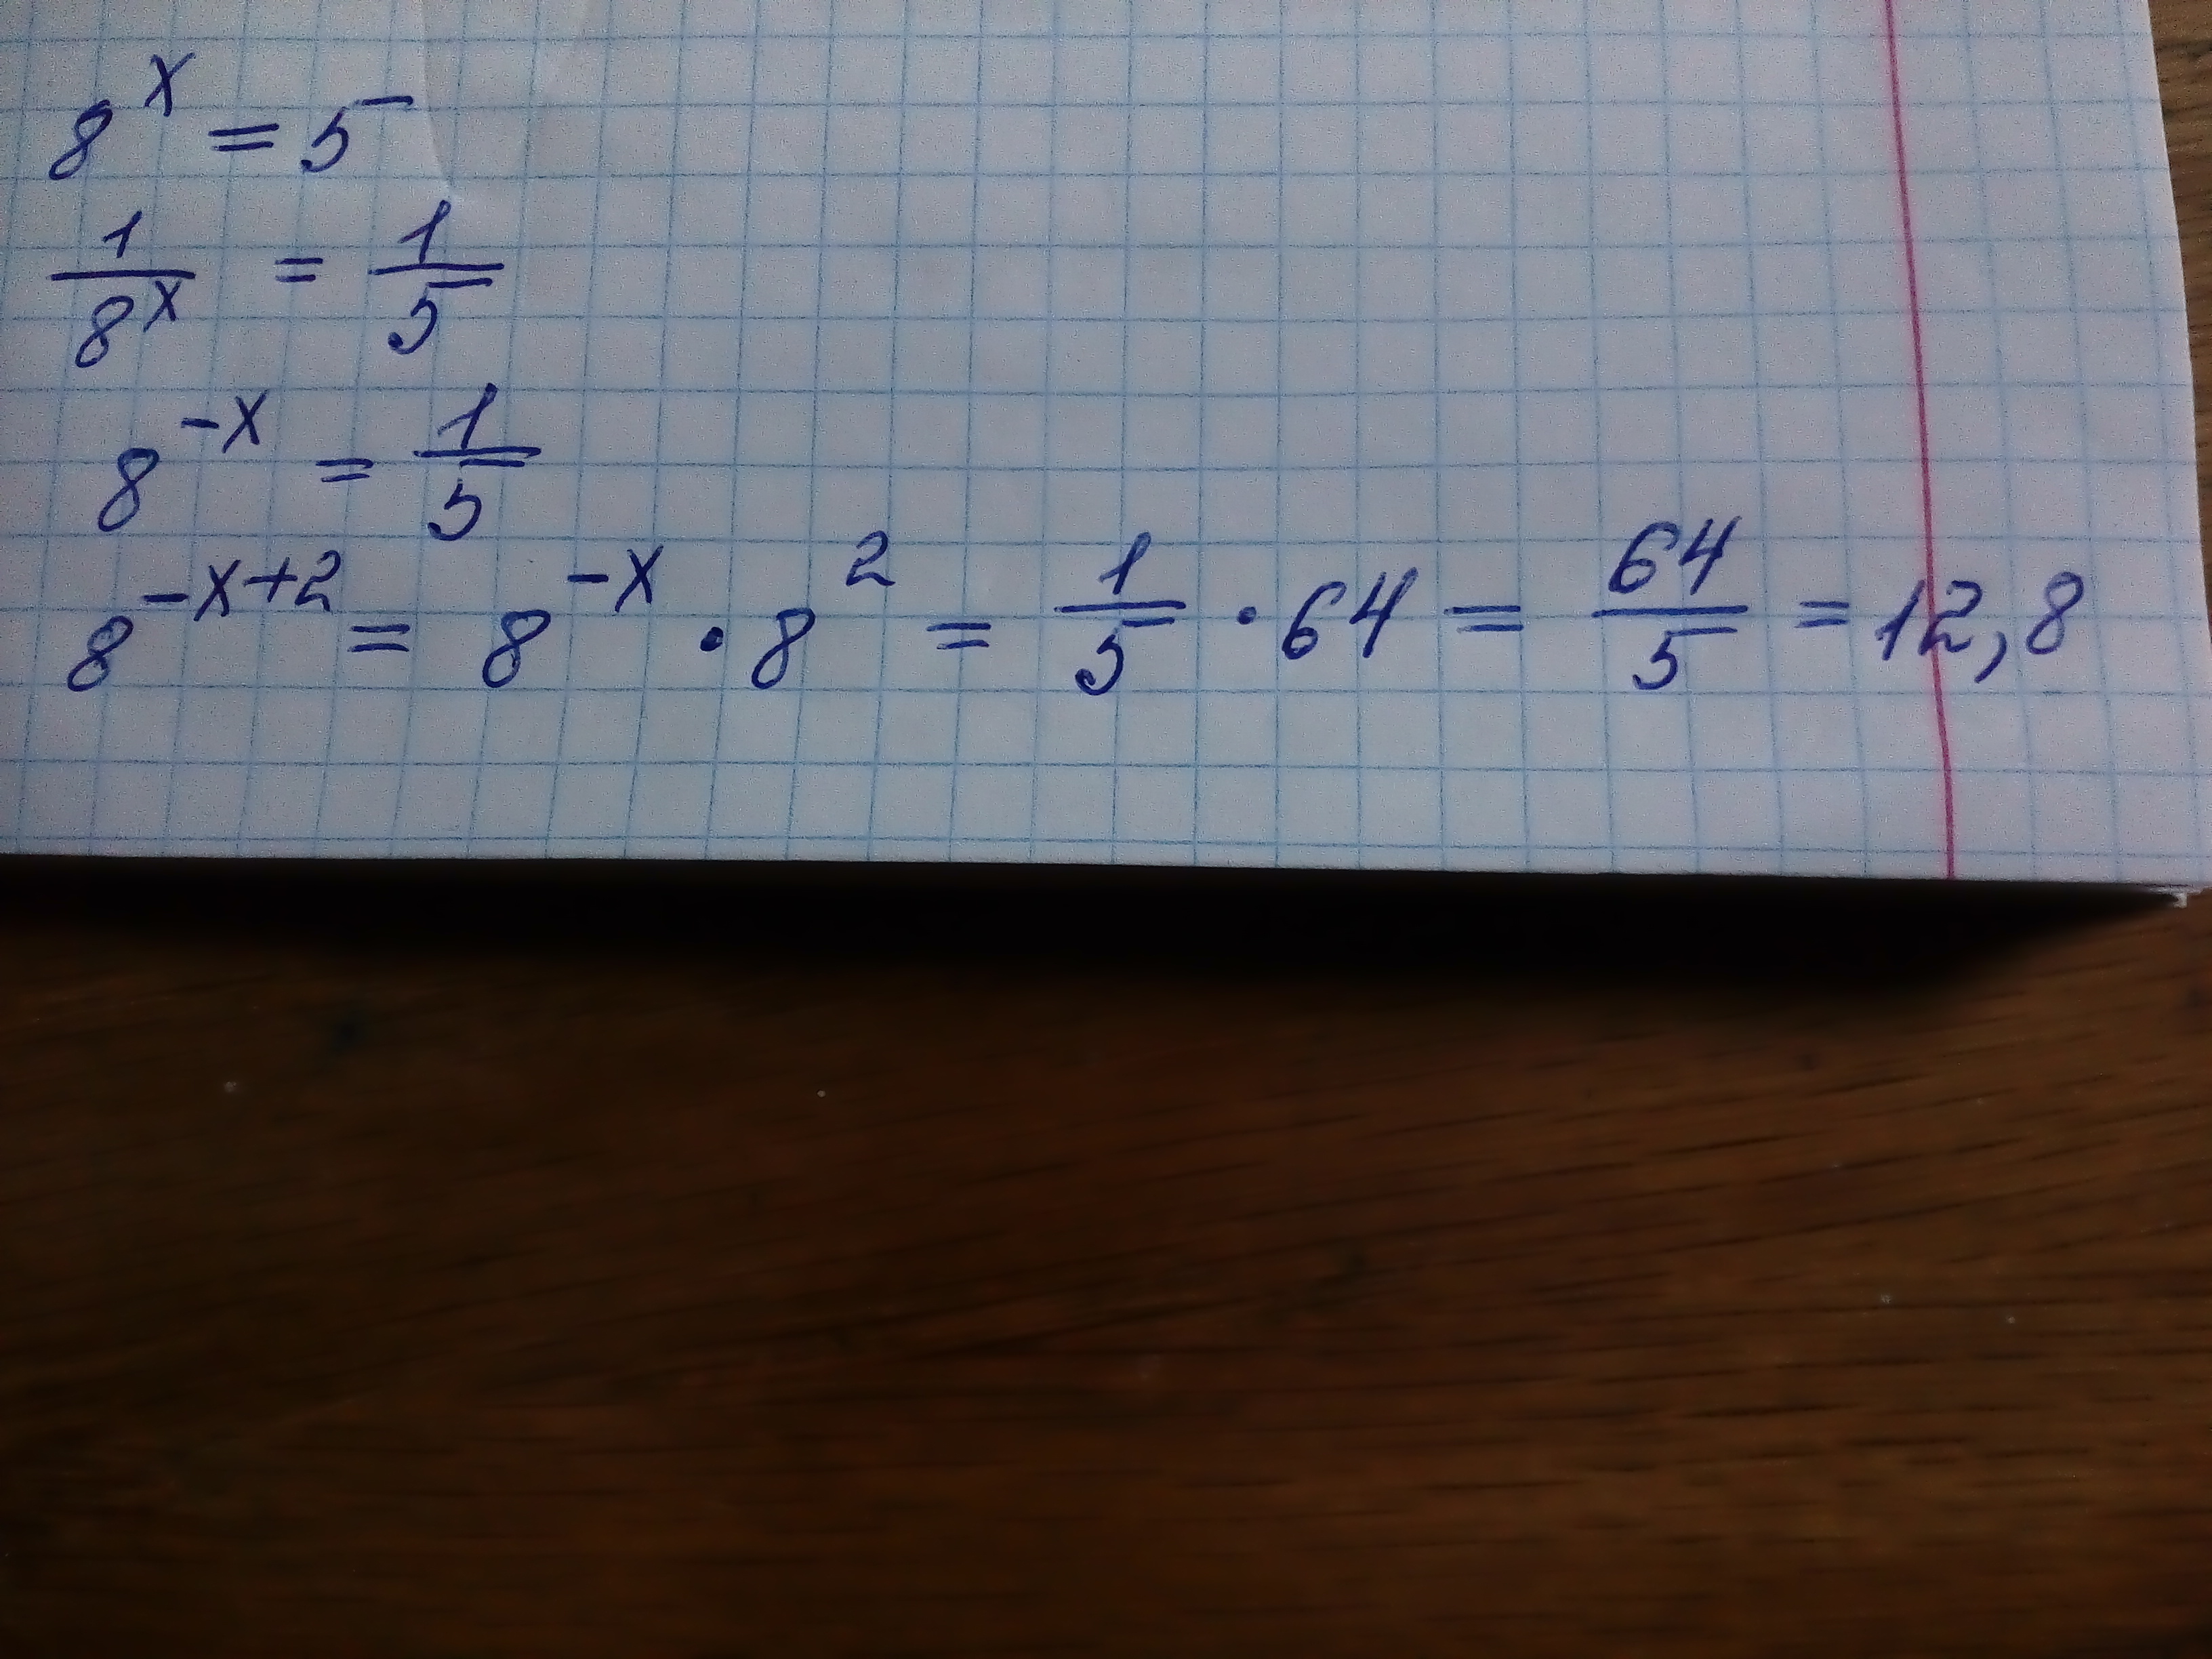 8^x = 5
1/8^x = 1/5
8^{-x} = 1/5
8^{-x+2} = 8^{-x} · 8^2 = 1/5 · 64 = 64/5 = 12,8